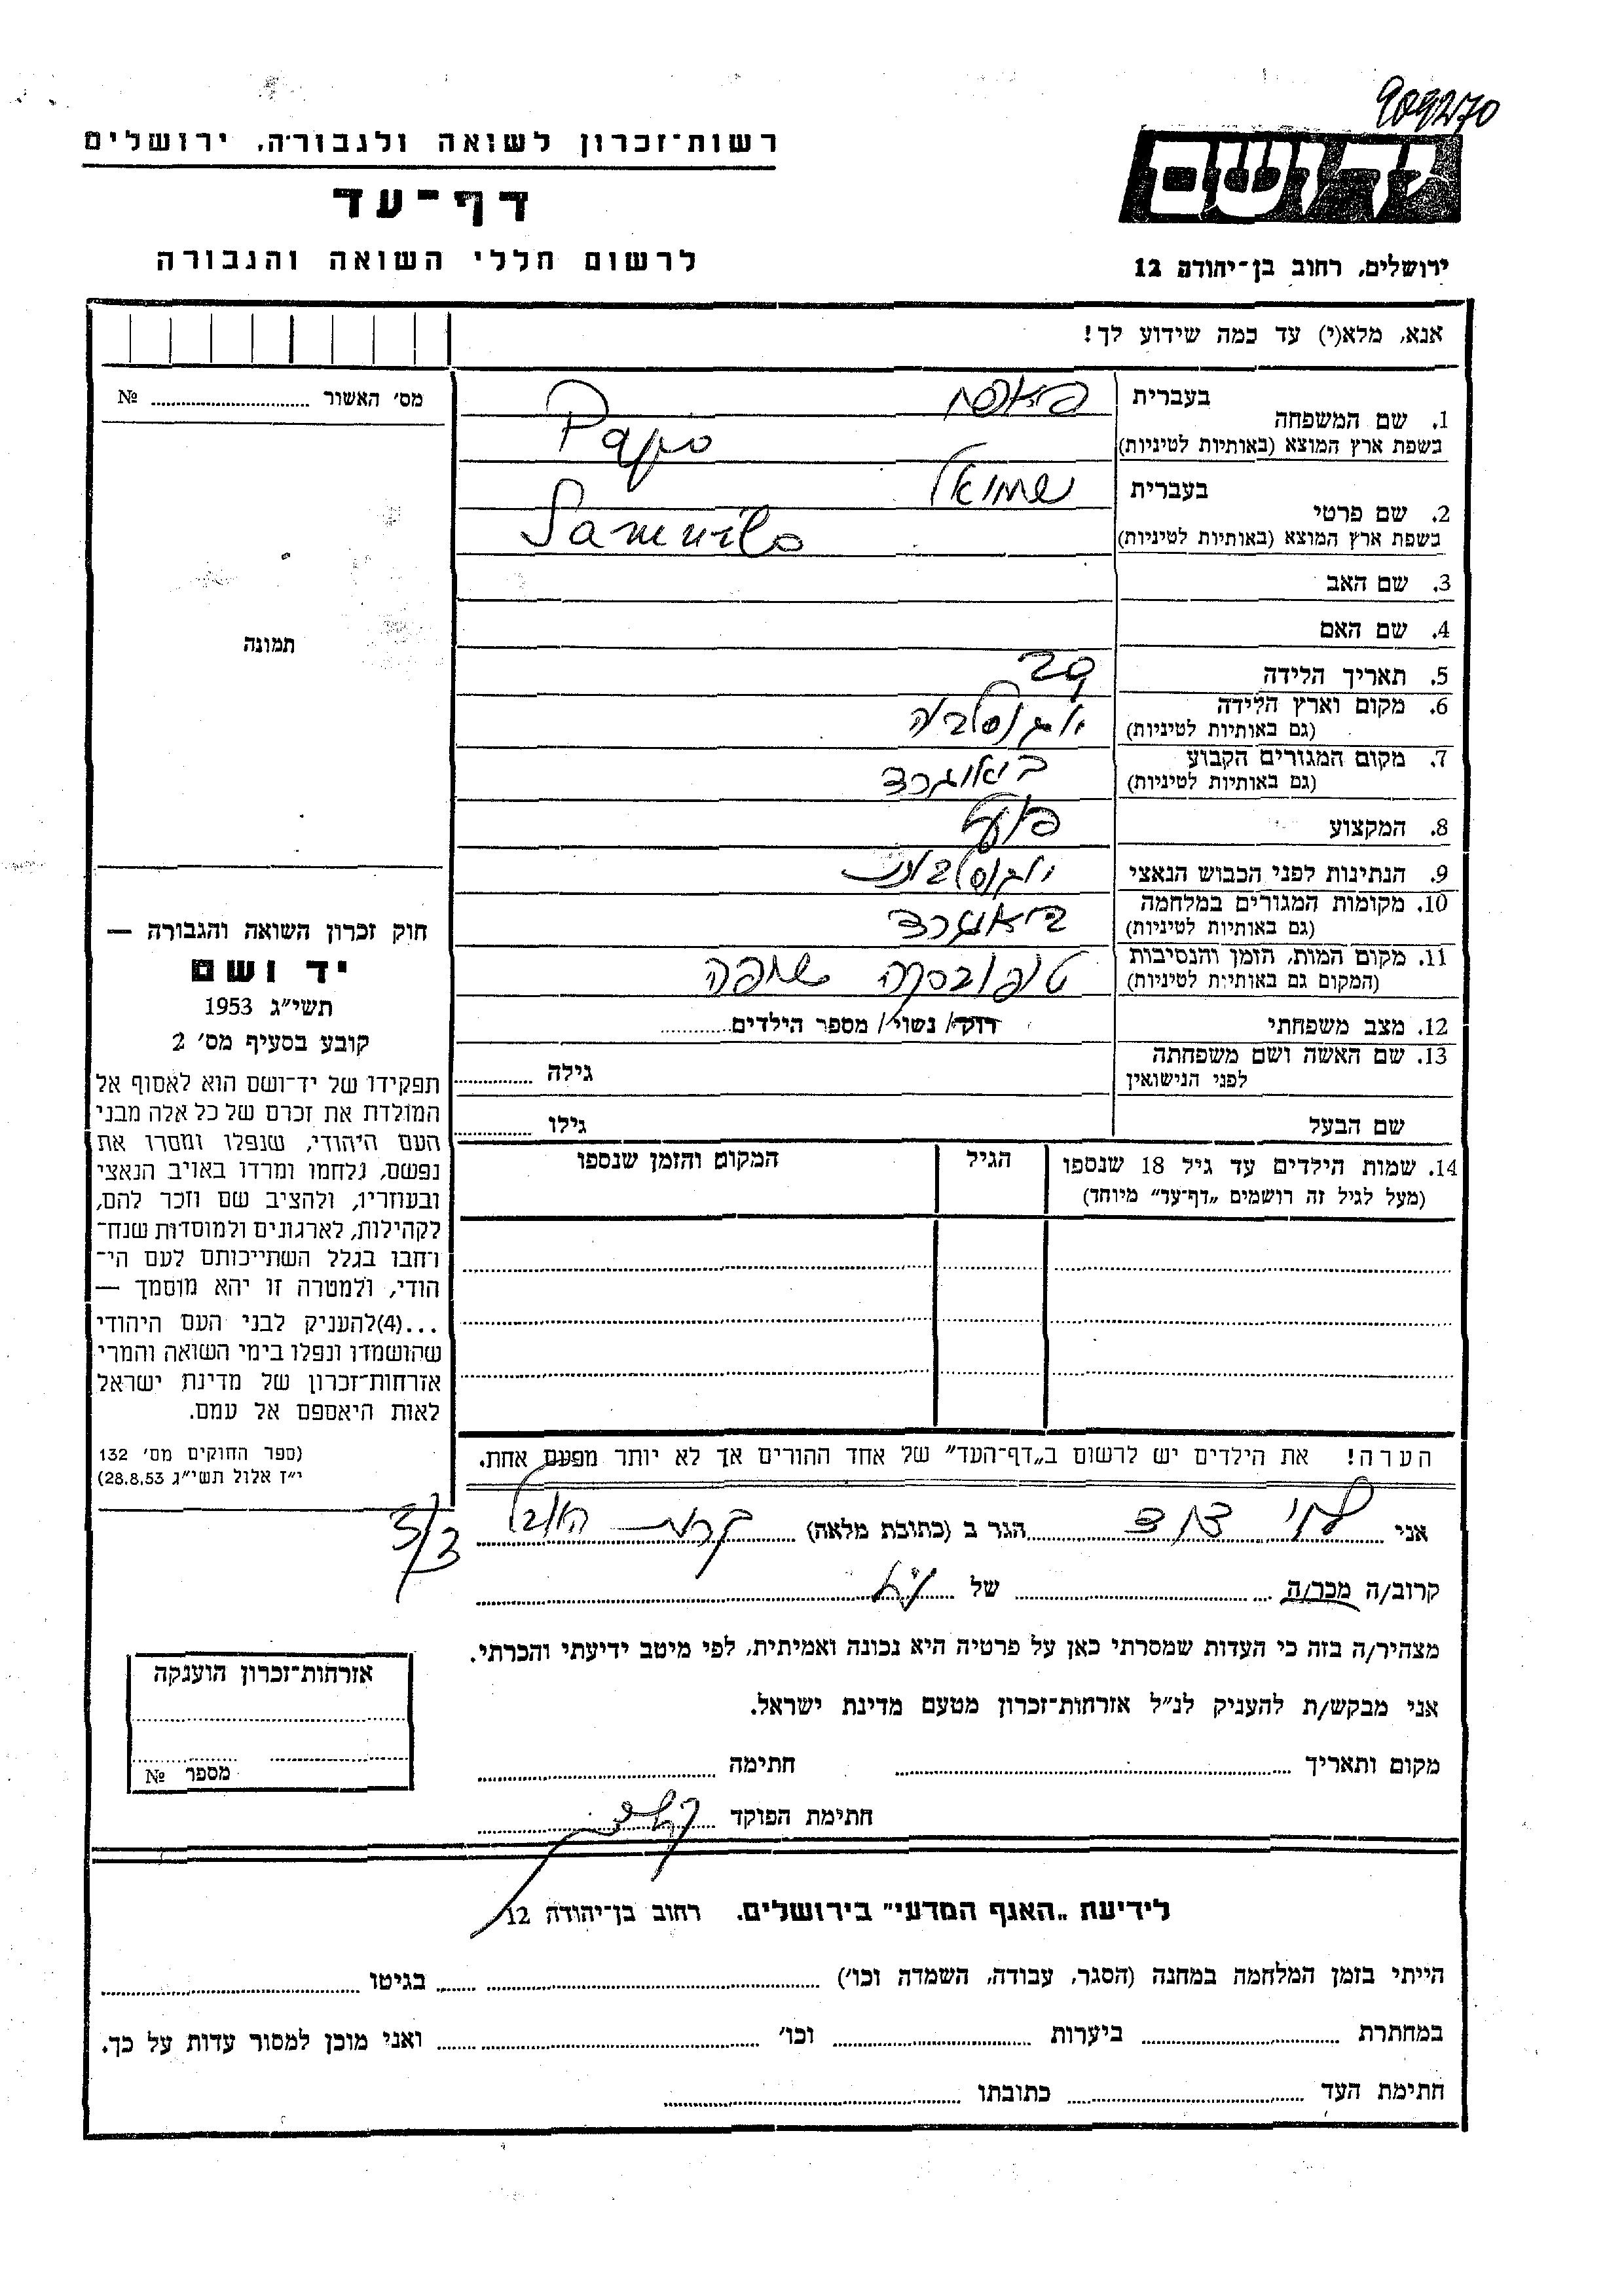 909270
יד ושם
ירושלים, רחוב בן־יהודה 12
רשות־זכרון לשואה ולגבורה, ירושלים
דף־עד
לרשום חללי השואה והגבורה
אנא, מלא(י) עד כמה שידוע לך!
מס׳ האשור № ........
תמונה
1. שם המשפחה
בעברית פאפו
בשפת ארץ המוצא (באותיות לטיניות) Papo
2. שם פרטי
בעברית שמואל
בשפת ארץ המוצא (באותיות לטיניות) Samuilo
3. שם האב
4. שם האם
5. תאריך הלידה
6. מקום וארץ הלידה יוגוסלביה
(גם באותיות לטיניות)
7. מקום המגורים הקבוע ביאוגרד
(גם באותיות לטיניות)
8. המקצוע פועל
9. הנתינות לפני הכבוש הנאצי יוגוסלבית
10. מקומות המגורים במלחמה ביאוגרד
(גם באותיות לטיניות)
11. מקום המות, הזמן והנסיבות טופובסקה שופה
(המקום גם באותיות לטיניות)
12. מצב משפחתי רווק/ נשוי/ מספר הילדים........
13. שם האשה ושם משפחתה
לפני הנישואין
גילה ........
שם הבעל גילו ........
14. שמות הילדים עד גיל 18 שנספו
(מעל לגיל זה רושמים „דף־עד” מיוחד)
הגיל
המקום והזמן שנספו
חוק זכרון השואה והגבורה —
יד ושם
תשי״ג 1953
קובע בסעיף מס׳ 2
תפקידו של יד־ושם הוא לאסוף אל
המולדת את זכרם של כל אלה מבני
העם היהודי, שנפלו ומסרו את
נפשם, נלחמו ומרדו באויב הנאצי
ובעוזריו, ולהציב שם וזכר להם,
לקהילות, לארגונים ולמוסדות שנח־
רחבו בגלל השתייכותם לעם הי־
הודי, ולמטרה זו יהא מוסמך —
...(4)להעניק לבני העם היהודי
שהושמדו ונפלו בימי השואה והמרי
אזרחות־זכרון של מדינת ישראל
לאות היאספם אל עמם.
(ספר החוקים מס׳ 132
י״ז אלול תשי״ג 28.8.53)
הערה! את הילדים יש לרשום ב„דף־העד” של אחד ההורים אך לא יותר מפעם אחת.
אני לוי דוד הגר ב (כתובת מלאה) קרית היובל
5/3
קרוב/ה מכר/ה ........ של ........
מצהיר/ה בזה כי העדות שמסרתי כאן על פרטיה היא נכונה ואמיתית, לפי מיטב ידיעתי והכרתי.
אני מבקש/ת להעניק לנ״ל אזרחות־זכרון מטעם מדינת ישראל.
מקום ותאריך ........ חתימה ........
חתימת הפוקד ........
אזרחות־זכרון הוענקה
מספר №
לידיעת „האגף המדעי” בירושלים. רחוב בן־יהודה 12
הייתי בזמן המלחמה במחנה (הסגר, עבודה, השמדה וכו׳) ........ בגיטו ........
במחתרת ........ ביערות ........ וכו׳ ........ ואני מוכן למסור עדות על כך.
חתימת העד ........ כתובתו ........